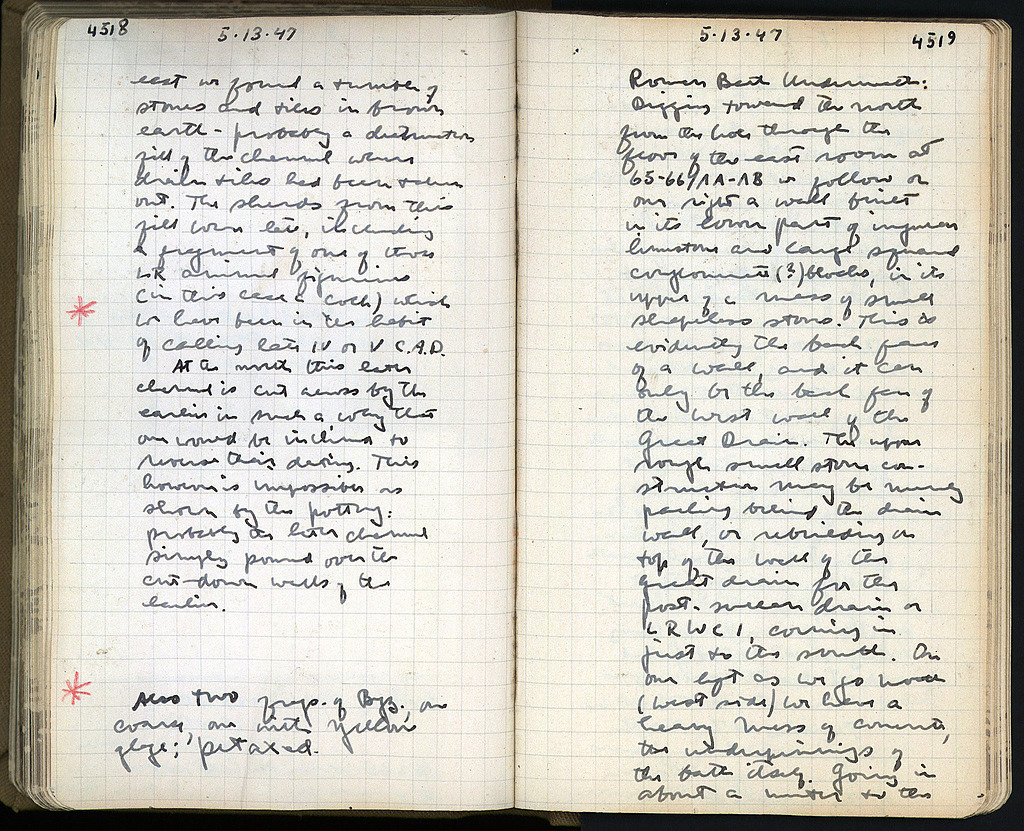 4518
5.13.47
east we found a tumble of
stones and tiles in brown
earth - probably a destruction
fill of the channel when
drain tiles had been taken
out. The sherds from this
fill were late, including
a fragment of one of those
LR animal figurines
(in this case a cock) which
we have been in the habit
of calling late IV or V C.A.D.
At the north this later
channel is cut across by the
earlier in such a way that
one would be inclined to
reverse their dating. This
however is impossible as
shown by the pottery:
probably the later channel
simply passed over the
cut-down walls of the
earlier.
Also two frags. of Byz., one
coarse, one with yellow
glaze;
5.13.47
4519
Roman Bath Underneath:
Digging toward the north
from the hole through the
floor of the east room at
65-66/ΛA-ΛB we follow on
our right a wall built
in its lower part of irregular
limestone and large squared
conglomerate (?) blocks, in its
upper of a mass of small
shapeless stones. This is
evidently the back face
of a wall, and it can
only be the back face of
the west wall of the
Great Drain. The upper
rough small stone con-
struction may be merely
packing behind the drain
wall, or rebuilding on
top of the wall of the
great drain for the
post-sullan drain or
LRWC 1, coming in
just to the south. On
our left as we go north
(west side) we have a
heavy mass of concrete,
the underpinnings of
the bath itself. Going in
about a meter to the